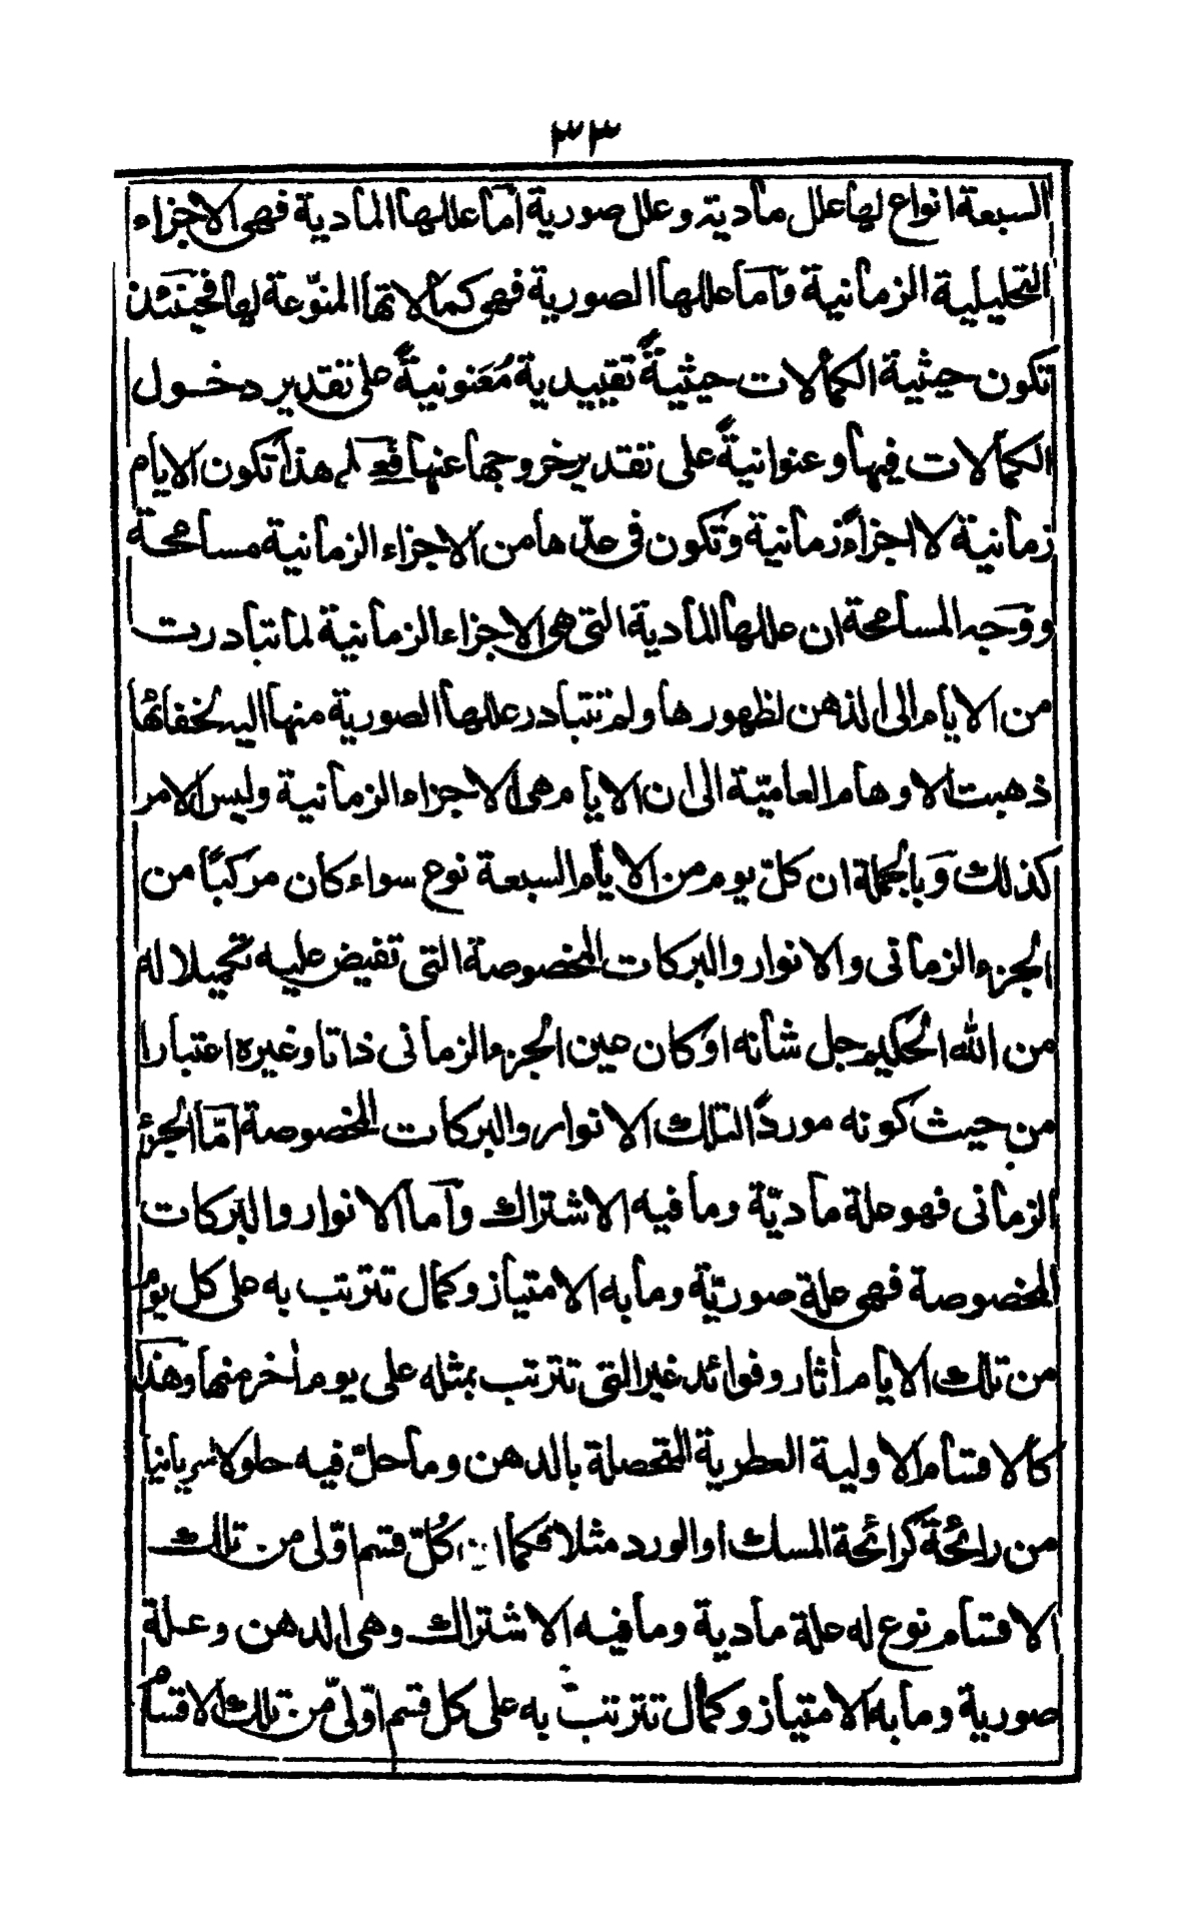 ٣٣
السبعة انواع لها علل مادية وعلل صورية اما عللها المادية فهى الاجزاء
التحليلية الزمانية وآما عللها الصورية فهى كمالاتها المنوّعة لها فحينئذ
تكون حيثية الكمالات حيثيةً تقييدية مُعَنونيةً على تقدير دخول
الكمالات فيها وعنوانيةً على تقدير خروجها عنها فعلم هذا تكون الايام
زمانية لا اجزاءً زمانية وتكون فى عدّها من الاجزاء الزمانية مسامحة
ووجه المسامحة ان عللها المادية التى هى الاجزاء الزمانية لما تبادرت
من الايام الى الذهن لظهورها ولم تتبادر عللها الصورية منها اليه لخفائها
ذهبت الاوهام العاميّة الى ان الايام هى الاجزاء الزمانية وليس الامر
كذلك وبالجملة ان كلّ يوم من الايام السبعة نوع سواء كان مركبًا من
الجزء الزمانى والانوار والبركات المخصوصة التى تفيض عليه تكميلا له
من الله الحكيم جل شأنه او كان عين الجزء الزمانى ذاتا وغيره اعتبارا
من حيث كونه موردًا لتلك الانوار والبركات المخصوصة امّا الجزء
الزمانى فهو علة ماديّة وما فيه الاشتراك وآما الانوار والبركات
المخصوصة فهى علة صوريّة وما به الامتياز وكمال تترتب به على كل يوم
من تلك الايام اٰثار وفوائد غير التى تترتب بمثله على يوم اٰخر منها وهذا
كالاقسام الاولية العطرية المتحصلة بالدهن وما حلّ فيه حلولا سريانيا
من رائحة كرائحة المسك او الورد مثلا فكما ان كُلّ قسم اوّلى من تلك
الاقسام نوع له علة مادية وما فيه الاشتراك وهى الدهن وعلة
صورية وما به الامتياز وكمال تترتب به على كل قسم اوّلىّ من تلك الاقسام